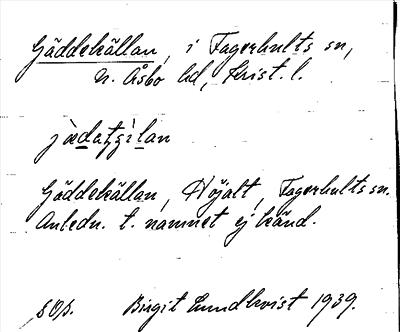 Gäddekällan, i Fagerhults sn,
N. Åsbo hd, Krist. l.
Gäddekällan, Höjalt, Fagerhults sn.
Anledn. t. namnet ej känd.
SOp. Birgit Lundkvist 1939.